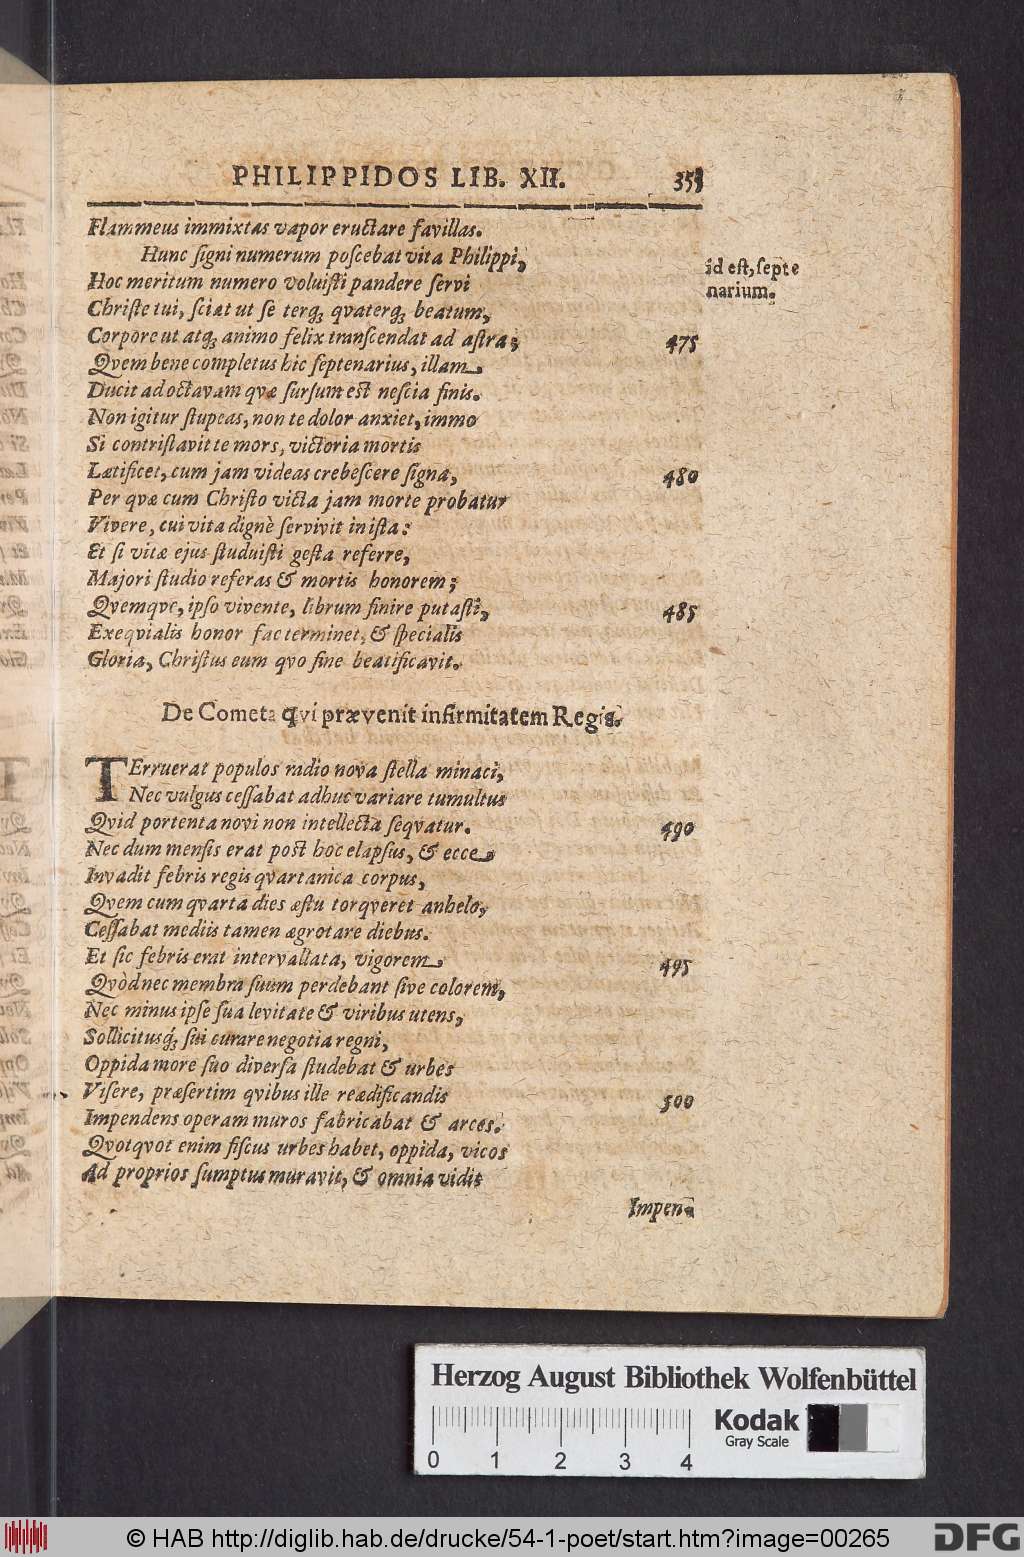 PHILIPPIDOS LIB. XII. 353
Flammeus immixtas vapor eructare favillas.
Hunc signi numerum poscebat vita Philippi,
id est, septe
narium.
Hoc meritum numero voluisti pandere servi
Christe tui, sciat ut se terq; qvaterq; beatum,
Corpore ut atq; animo felix transcendat ad astra; 475
Qvem bene completus hic septenarius, illam
Ducit ad octavam qvæ sursum est nescia finis.
Non igitur stupeas, non te dolor anxiet, immo
Si contristavit te mors, victoria mortis
Lætificet, cum jam videas crebescere signa, 480
Per qvæ cum Christo victa jam morte probatur
Vivere, cui vita dignè servivit in ista:
Et si vitæ ejus studuisti gesta referre,
Majori studio referas & mortis honorem;
Qvemqve, ipso vivente, librum finire putasti, 485
Exeqvialis honor fac terminet, & specialis
Gloria, Christus eum qvo fine beatificavit.
De Cometa qvi prævenit infirmitatem Regis.
TErruerat populos radio nova stella minaci,
Nec vulgus cessabat adhuc variare tumultus
Qvid portenta novi non intellecta seqvatur. 490
Nec dum mensis erat post hoc elapsus, & ecce
Invadit febris regis qvartanica corpus,
Qvem cum qvarta dies æstu torqveret anhelo,
Cessabat mediis tamen ægrotare diebus.
Et sic febris erat intervallata, vigorem 495
Qvòd nec membra suum perdebant sive colorem,
Nec minus ipse sua levitate & viribus utens,
Sollicitusq; sui curare negotia regni,
Oppida more suo diversa studebat & urbes
Visere, præsertim qvibus ille reædificandis 500
Impendens operam muros fabricabat & arces.
Qvotqvot enim fiscus urbes habet, oppida, vicos
Ad proprios sumptus muravit, & omnia vidit
Impen-
Herzog August Bibliothek Wolfenbüttel
Kodak
Gray Scale
0 1 2 3 4
© HAB http://diglib.hab.de/drucke/54-1-poet/start.htm?image=00265
DFG